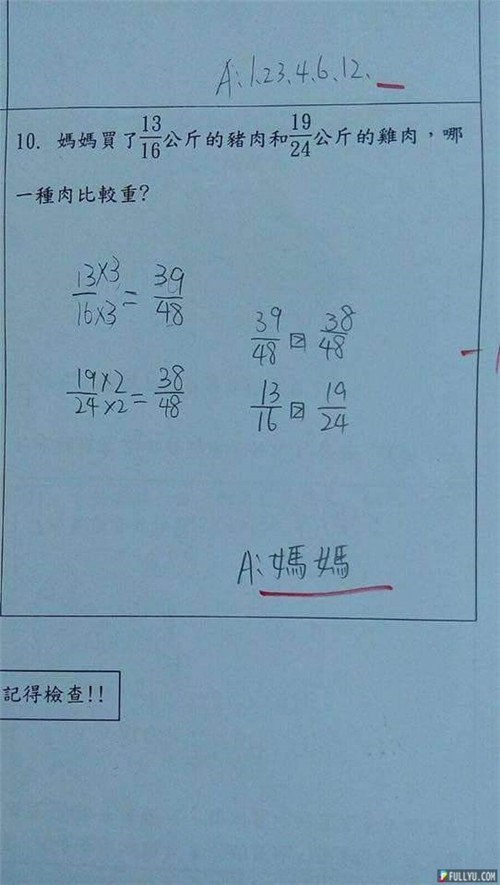 A:1、2、3、4、6、12、
10. 媽媽買了13/16公斤的豬肉和19/24公斤的雞肉，哪
一種肉比較重?
13×3/16×3=39/48
39/48 > 38/48
19×2/24×2=38/48
13/16 > 19/24
A:媽媽
記得檢查!!
FULLYU.COM